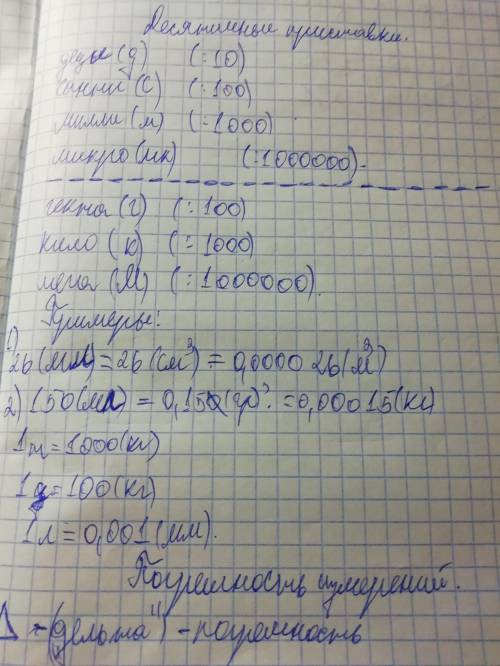 Десятичные приставки.
деци (д) (:10)
санти (с) (:100)
милли (м) (:1000)
микро (мк) (:1000000).
гекта (г) (:100)
кило (к) (:1000)
мега (М) (:1000000).
Примеры:
1) 26 (мл) = 26 (см³) = 0,000026 (м³)
2) 150 (мл) = 0,150 = 0,00015 (кг)
1т = 1000 (кг)
1ц = 100 (кг)
1л = 0,001 (мм).
Погрешность измерений.
Δ - (дельта") - погрешность